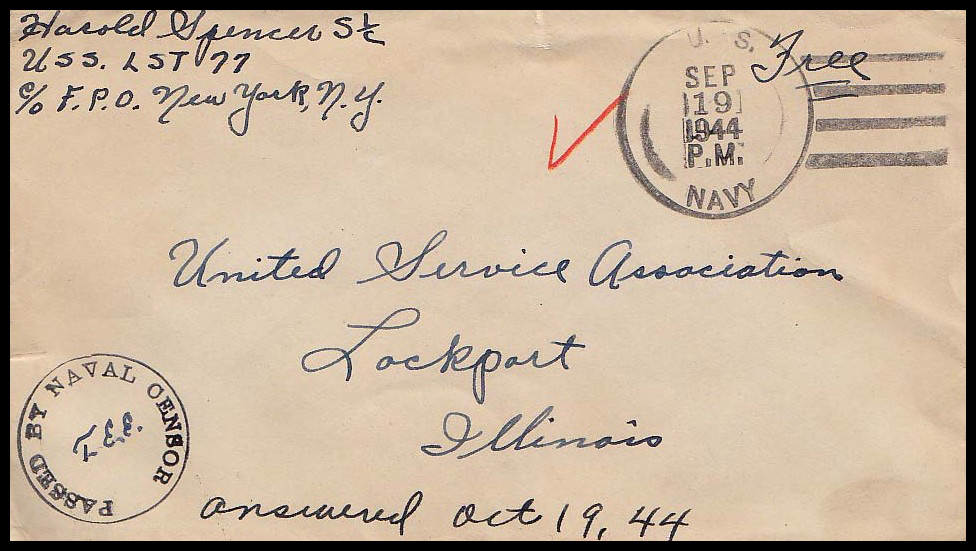 Harold Spencer S1/c
USS. LST 77
c/o F.P.O. New York, N.Y.
U. S.
SEP
19
1944
P.M.
NAVY
Free
United Service Association
Lockport
Illinois
PASSED BY NAVAL CENSOR
answered Oct 19, 44